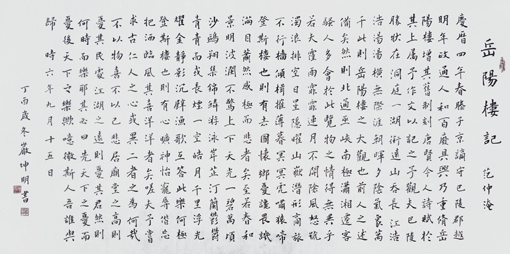 岳陽樓記 范仲淹
慶曆四年春滕子京謫守巴陵郡越
明年政通人和百廢具興乃重修岳
陽樓增其舊制刻唐賢今人詩賦於
其上屬予作文以記之予觀夫巴陵
勝狀在洞庭一湖銜遠山吞長江
浩浩湯湯橫無際涯朝暉夕陰氣象萬
千此則岳陽樓之大觀也前人之述
備矣然則北通巫峽南極瀟湘遷客
騷人多會於此覽物之情得無異乎
若夫霪雨霏霏連月不開陰風怒號
濁浪排空日星隱曜山嶽潛形商旅
不行檣傾楫摧薄暮冥冥虎嘯猿啼
登斯樓也則有去國懷鄉憂讒畏譏
滿目蕭然感極而悲者矣至若春和
景明波瀾不驚上下天光一碧萬頃
沙鷗翔集錦鱗游泳岸芷汀蘭鬱鬱
青青而或長煙一空皓月千里浮光
耀金靜影沉璧漁歌互答此樂何極
登斯樓也則有心曠神怡寵辱偕忘
把酒臨風其喜洋洋者矣嗟夫予嘗
求古仁人之心或異二者之為何哉
不以物喜不以己悲居廟堂之高則
憂其民處江湖之遠則憂其君然則
何時而樂耶其必曰先天下之憂而
憂後天下之樂樂歟噫微斯人吾誰與
歸 時六年九月十五日
丁丙歲冬嚴坤明書